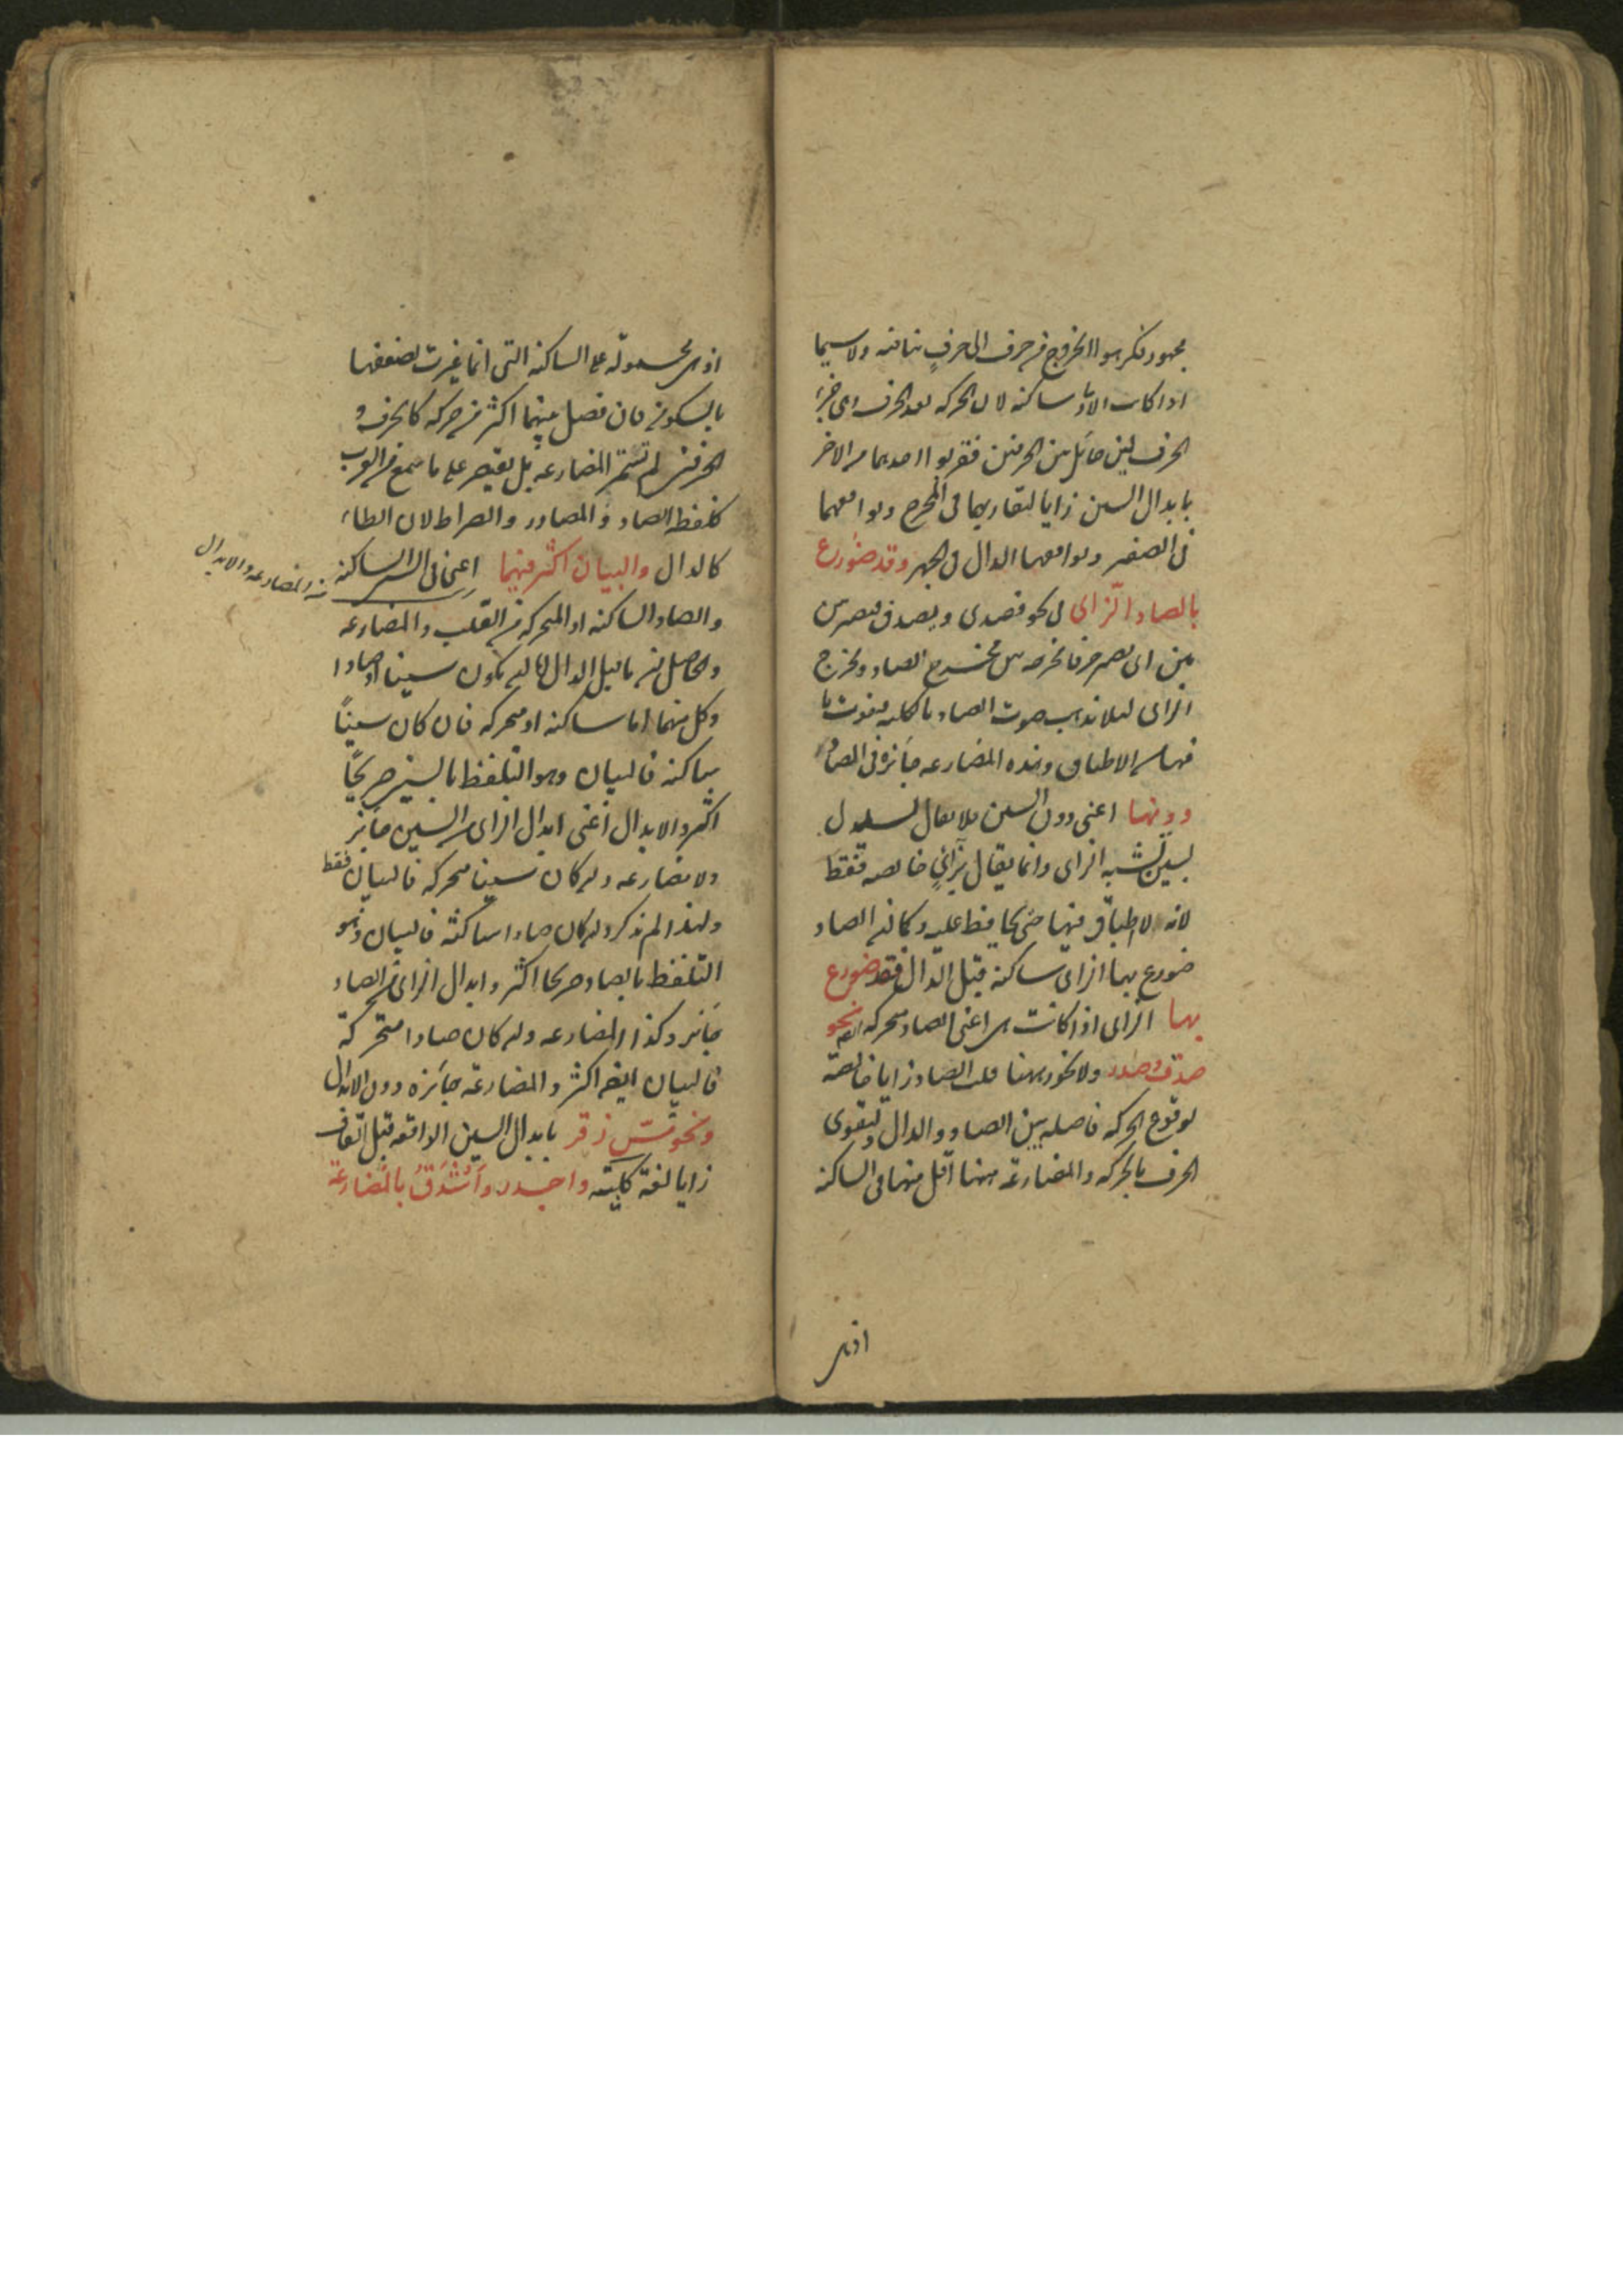 مجهور فكرهوا الخروج من حرف الى حرف ينافيه ولاسيما
اذا كانت الاولى ساكنة لان الحركة بعد الحرف وهى جزء
الحرف لين حائل بين الحرفين فقربوا احديهما من الاخر
بابدال السين زايا لتقاربهما فى المخرج وتوافقهما
فى الصفير وتوافقهما الدال فى الجهر وقد ضورع
بالصاد الزاى فى نحو قصدى ويصدق فيصير بين
بين اى يصير حرفا مخرجه بين مخرج الصاد ومخرج
الزاى لئلا يذهب صوت الصاد بالكلية فيفوت ما
فيها من الاطباق وهذه المضارعة جائزة فى الصاد
دونها اعنى دون السين فلا يقال لسدل
بسين تشبه الزاى وانما يقال بزاى خالصة فقط
لانه لا اطباق فيها حتى يحافظ عليه وكما ان الصاد
ضورع بها الزاى ساكنة قبل الدال فقد ضورع
بها الزاى اذا كانت هى اعنى الصاد متحركة ايضا نحو
صدق وصدر ولا يجوز ههنا قلب الصاد زايا خالصة
لوقوع الحركة فاصلة بين الصاد والدال ولتقوى
الحرف بالحركة والمضارعة ههنا اقل منها فى الساكنة
اذ هى
اذ هى محمولة على الساكنة التى انما غيرت لضعفها
بالسكون فان فصل بينهما اكثر من حركة كالحرف و
الحرفين لم تستمر المضارعة بل يقتصر على ما سمع من العرب
كلفظ الصاد والمصادر والصراط لان الطاء
كالدال والبيان اكثر فيهما اعنى فى السين الساكنة
والصاد الساكنة او المتحركة من القلب والمضارعة
من المضارعة والابدال
والحاصل ان ما قبل الدال اما ان يكون سينا او صادا
وكل منهما اما ساكنة او متحركة فان كان سينًا
ساكنة فالبيان وهو التلفظ بالسين صريحًا
اكثر والابدال اعنى ابدال الزاى من السين جائز
ولا مضارعة وان كان سينا متحركة فالبيان فقط
ولهذا لم يذكر وان كان صادا ساكنة فالبيان وهو
التلفظ بالصاد صريحا اكثر وابدال الزاى من الصاد
جائز وكذا المضارعة وان كان صادا متحركة
فالبيان ايضا اكثر والمضارعة جائزة دون الابدال
ونحو مسّ زقر بابدال السين الواقعة قبل القاف
زايا لغة كلبية واجدر وأشدق بالمضارعة